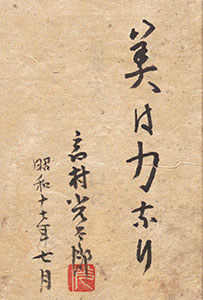 美は力なり
高村光太郎
昭和十七年七月